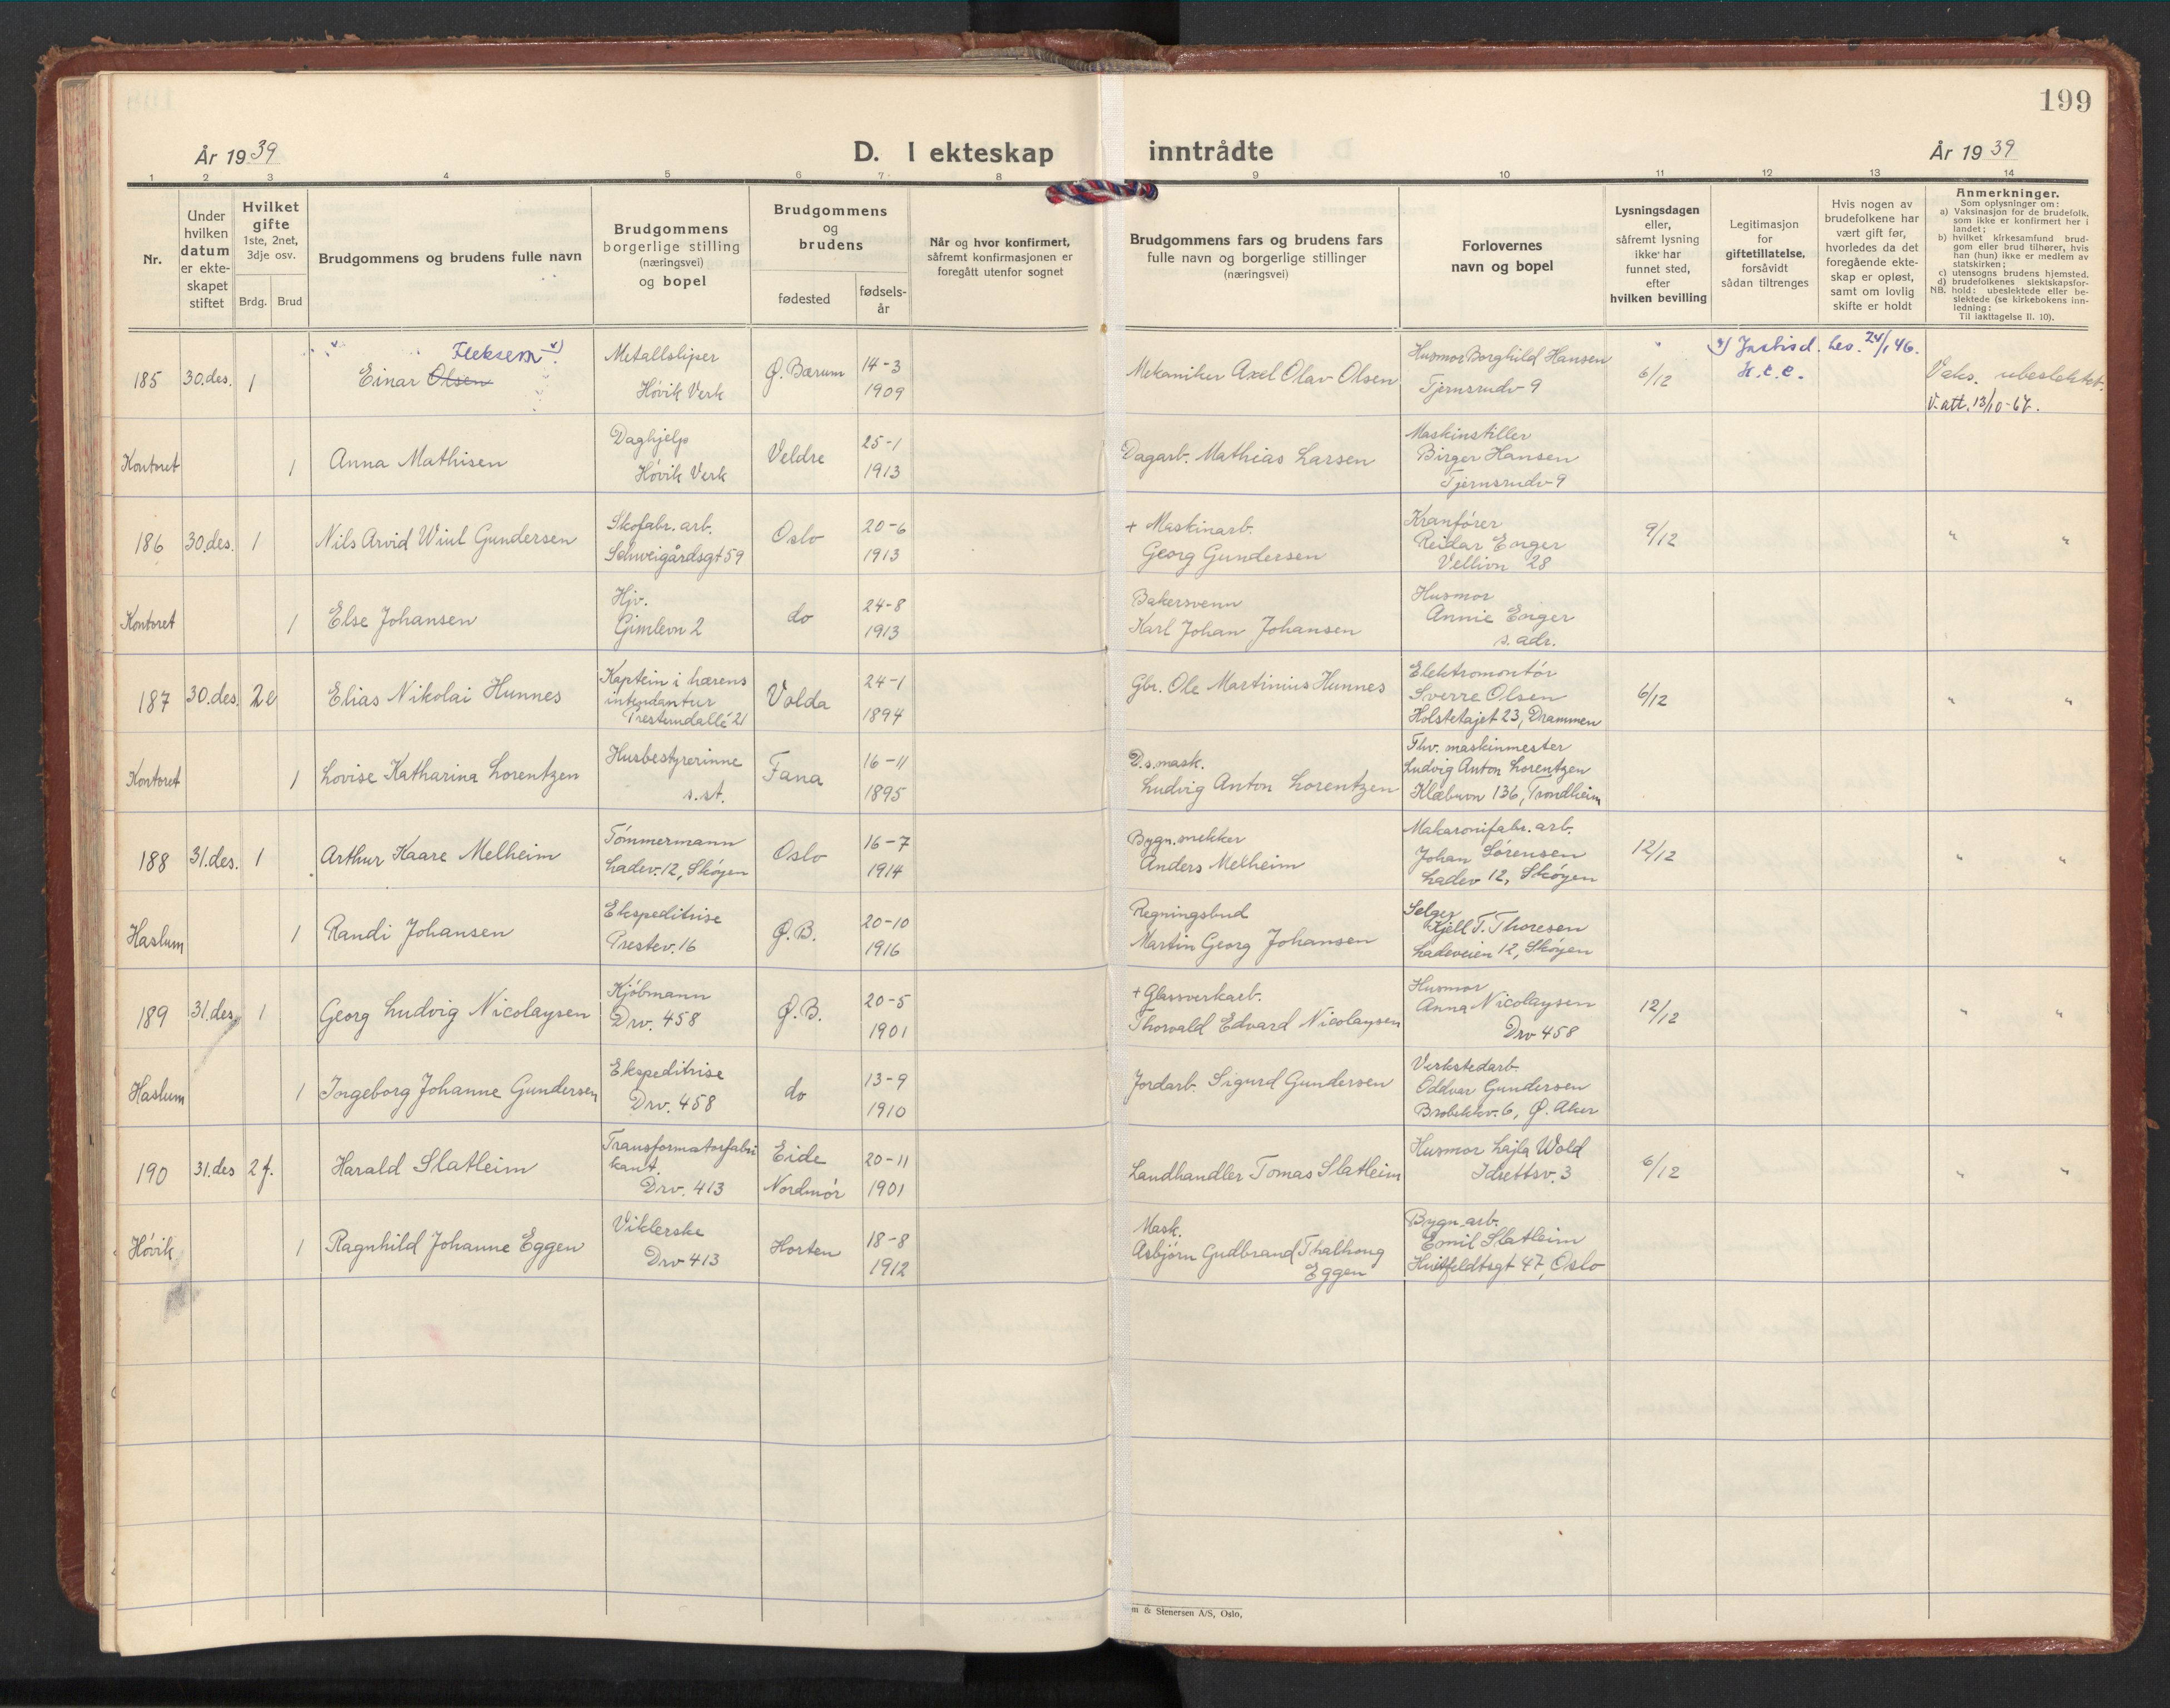 199
År 1939
D. I ekteskap inntrådte
År 1939
1 2 3 4 5 6 7 8 9 10 11 12 13 14
Nr.
Under hvilken datum er ekte-skapet stiftet
Hvilket gifte 1ste, 2net, 3dje osv.
Brdg. Brud
Brudgommens og brudens fulle navn
Brudgommens borgerlige stilling (næringsvei) og bopel
Brudgommens og brudens
fødested
fødsels-år
Når og hvor konfirmert, såfremt konfirmasjonen er foregått utenfor sognet
Brudgommens fars og brudens fars fulle navn og borgerlige stillinger (næringsvei)
Forlovernes navn og bopel
Lysningsdagen eller, såfremt lysning ikke har funnet sted, efter hvilken bevilling
Legitimasjon for giftetillatelse, forsåvidt sådan tiltrenges
Hvis nogen av brudefolkene har vært gift før, hvorledes da det foregående ekte-skap er opløst, samt om lovlig skifte er holdt
Anmerkninger.
Som oplysninger om:
a) Vaksinasjon for de brudefolk, som ikke er konfirmert her i landet;
b) hvilket kirkesamfund brud-gom eller brud tilhører, hvis han (hun) ikke er medlem av statskirken;
c) utensogns brudens hjemsted.
d) brudefolkenes slektskapsfor-hold: ubeslektede eller be-slektede (se kirkebokens inn-ledning:
NB.
Til iakttagelse II. 10).
185 30.des. 1 Einar Olsen Fleksem x)
Metallsliper Høvik Verk
Ø. Bærum 14-3 1909
Mekaniker Axel Olav Olsen
Husmor Borghild Hansen Tjernsrudv 9
6/12
x) Justisd. bev. 24/1 46.
H.t.e.
Vaks. ubeslektet.
V. att. 13/10-67.
Kontoret 1 Anna Mathisen
Daghjelp Høvik Verk
Veldre 25-1 1913
Dagarb. Mathias Larsen
Maskinstiller Birger Hansen Tjernsrudv 9
186 30.des. 1 Nils Arvid Wiul Gundersen
Skofabr. arb. Schweigårdsgt 59
Oslo 20-6 1913
+ Maskinarb. Georg Gundersen
Kranfører Reidar Enger Vellivn 28
9/12 " "
Kontoret 1 Else Johansen
Hjv. Gimlevn 2
do 24-8 1913
Bakersvenn Karl Johan Johansen
Husmor Annie Enger s. adr.
187 30.des. 2e Elias Nikolai Hunnes
Kaptein i hærens intendantur Presterudallé 21
Volda 24-1 1894
Gbr. Ole Martinius Hunnes
Elektromontør Sverre Olsen Holstetajet 23, Drammen
6/12 " "
Kontoret 1 Lovise Katharina Lorentzen
Husbestyrerinne s.st.
Fana 16-11 1895
D.s.mask. Ludvig Anton Lorentzen
Fhv. maskinmester Ludvig Anton Lorentzen Klæbuvn 136, Trondheim
188 31.des. 1 Arthur Kaare Melheim
Tømmermann Ladev. 12, Skøyen
Oslo 16-7 1914
Bygn.snekker Anders Melheim
Makaronifabr. arb. Johan Sørensen Ladev 12, Skøyen
12/12 " "
Haslum 1 Randi Johansen
Ekspeditrise Prestev. 16
Ø.B. 20-10 1916
Regningsbud Martin Georg Johansen
Selger Kjell T. Thoresen Ladeveien 12, Skøyen
189 31.des. 1 Georg Ludvig Nicolaysen
Kjøbmann Drv. 458
Ø.B. 20-5 1901
+ Glassverkarb. Thorvald Edvard Nicolaysen
Husmor Anna Nicolaysen Drv 458
12/12 " "
Haslum 1 Ingeborg Johanne Gundersen
Ekspeditrise Drv. 458
do 13-9 1910
Jordarb. Sigurd Gundersen
Verkstedarb. Oddvar Gundersen Brobekkv. 6, Ø. Aker
190 31.des 2f. Harald Slatleim
Transformatorfabrikant. Drv. 413
Eide Nordmør 20-11 1901
Landhandler Tomas Slatleim
Husmor Lajla Wold Idrettsv. 3
6/12 " "
Høvik 1 Ragnhild Johanne Eggen
Viklerske Drv 413
Horten 18-8 1912
Mask. Asbjørn Gudbrand Thalhoug Eggen
Bygn.arb. Emil Slatleim Huitfeldtsgt 47, Oslo
m & Stenersen A/S, Oslo.